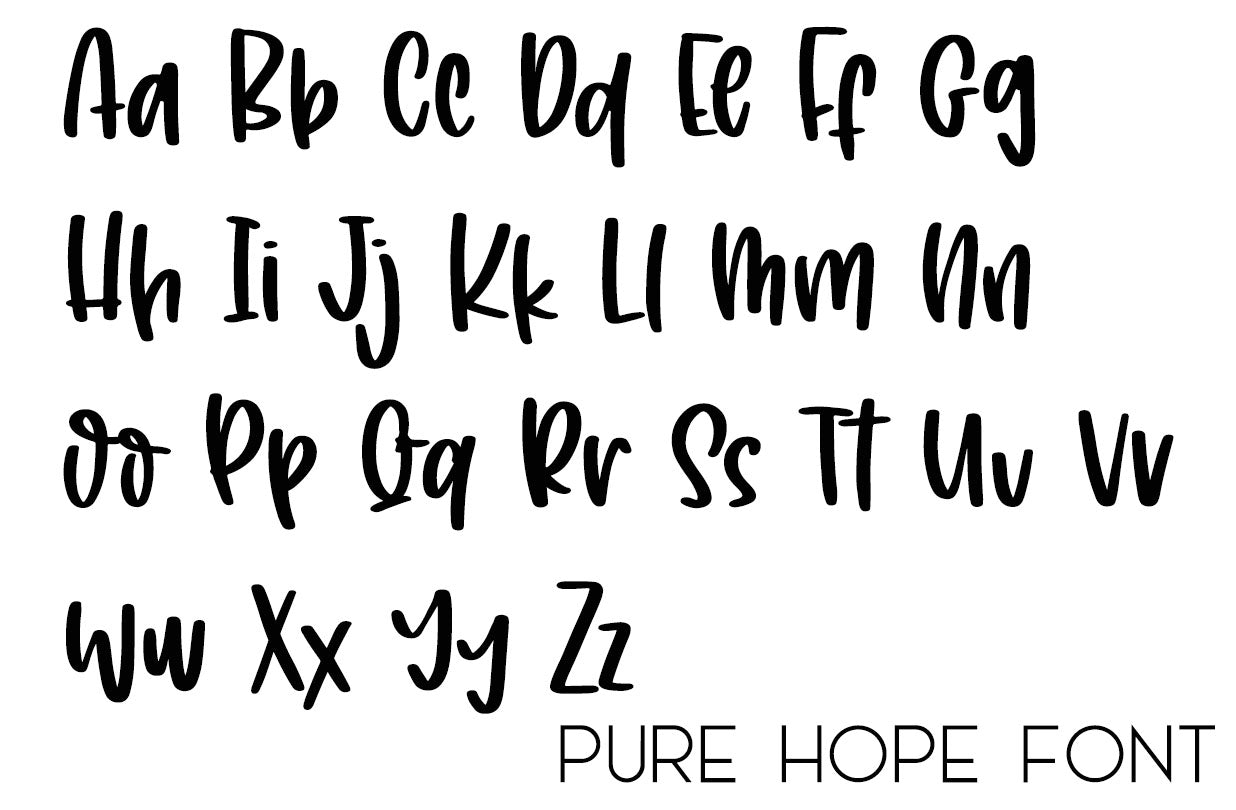 Aa Bb Cc Dd Ee Ff Gg
Hh Ii Jj Kk Ll Mm Nn
Oo Pp Qq Rr Ss Tt Uu Vv
Ww Xx Yy Zz
PURE HOPE FONT